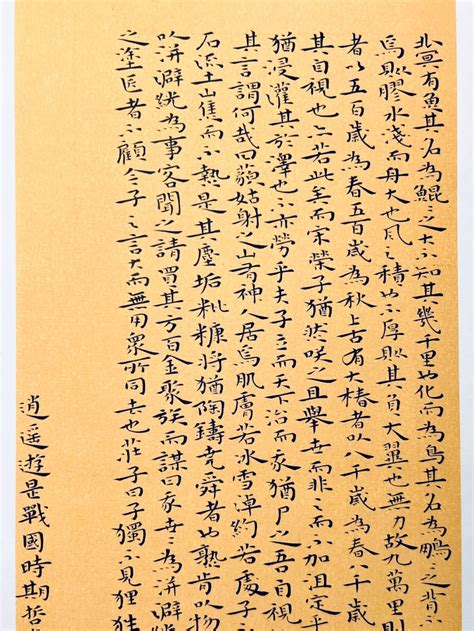 北冥有魚其名為鯤々之大不知其幾千里也化而為鳥其名為鵬々之背不
焉則膠水淺而舟大也風之積也不厚則其負大翼也無力故九萬里則
者以五百歲為春五百歲為秋上古有大椿者以八千歲為春八千歲
其自視也亦若此矣而宋榮子猶然咲之且舉世而非之而不加沮定乎
猶浸灌其於澤也不亦勞乎夫子立而天下治而我猶尸之吾自視
其言謂何哉曰藐姑射之山有神人居焉肌膚若冰雪淖約若處子
石流土山焦而不熱是其塵垢粃糠將猶陶鑄堯舜者也孰肯以物
以洴澼絖為事客聞之請買其方百金聚族而謀曰我世々為洴澼
之塗匠者不顧今子之言大而無用眾所同去也莊子曰子獨不見狸狌
逍遥游是戰國時期哲